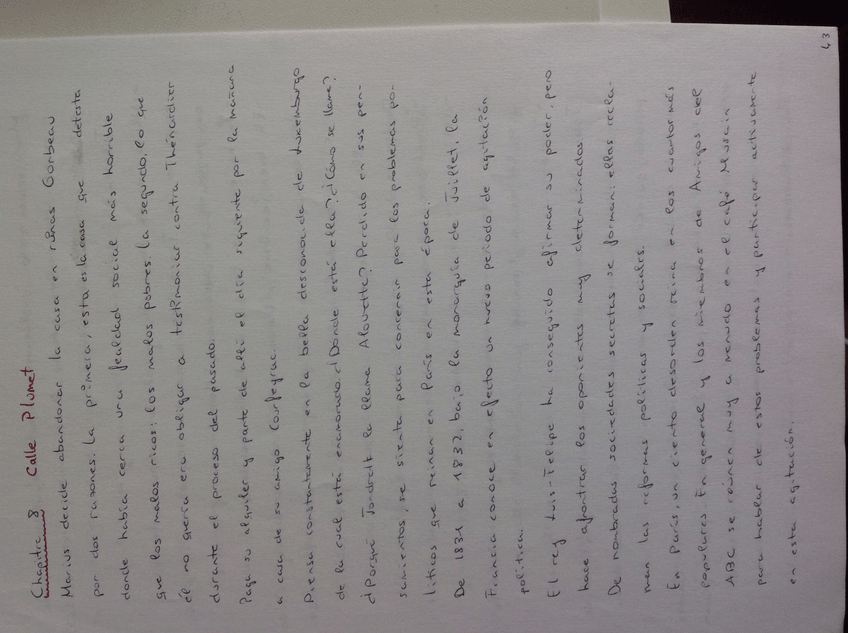 Chapitre 8 Calle Plumet
Marius decide abandonar la casa en ruinas Gorbeau
por dos razones. La primera, esta es la casa que detesta
donde había cerca una fealdad social más horrible
que los malos ricos: los malos pobres. La segundo, lo que
él no quería era obligar a testimoniar contra Thénardier
durante el proceso del pasado.
Paga su alquiler y parte de allí el día siguiente por la mañana
a casa de su amigo Courfeyrac.
Piensa constantemente en la bella desconocida de Luxemburgo
de la cual está enamorado. ¿Dónde está ella? ¿Cómo se llama?
¿Porqué Jondrett la llama Alouette? Perdido en sus pen-
samientos, se sienta para concernir para los problemas po-
líticos que reinan en París en esta época.
De 1831 a 1832, bajo la monarquía de Juillet, la
Francia conoce en efecto un nuevo periodo de agitación
política.
El rey Luis-Felipe ha conseguido afirmar su poder, pero
hace afrontrar los oponientes muy determinados.
De nombradas sociedades secretas se forman: ellas recla-
man las reformas políticas y sociales.
En París, un ciento desorden reina en los cuartos más
populares. En general y los miembros de Amigos del
ABC se reúnen muy a menudo en el café Musain
para hablar de estos problemas y participar activamente
en esta agitación.
43